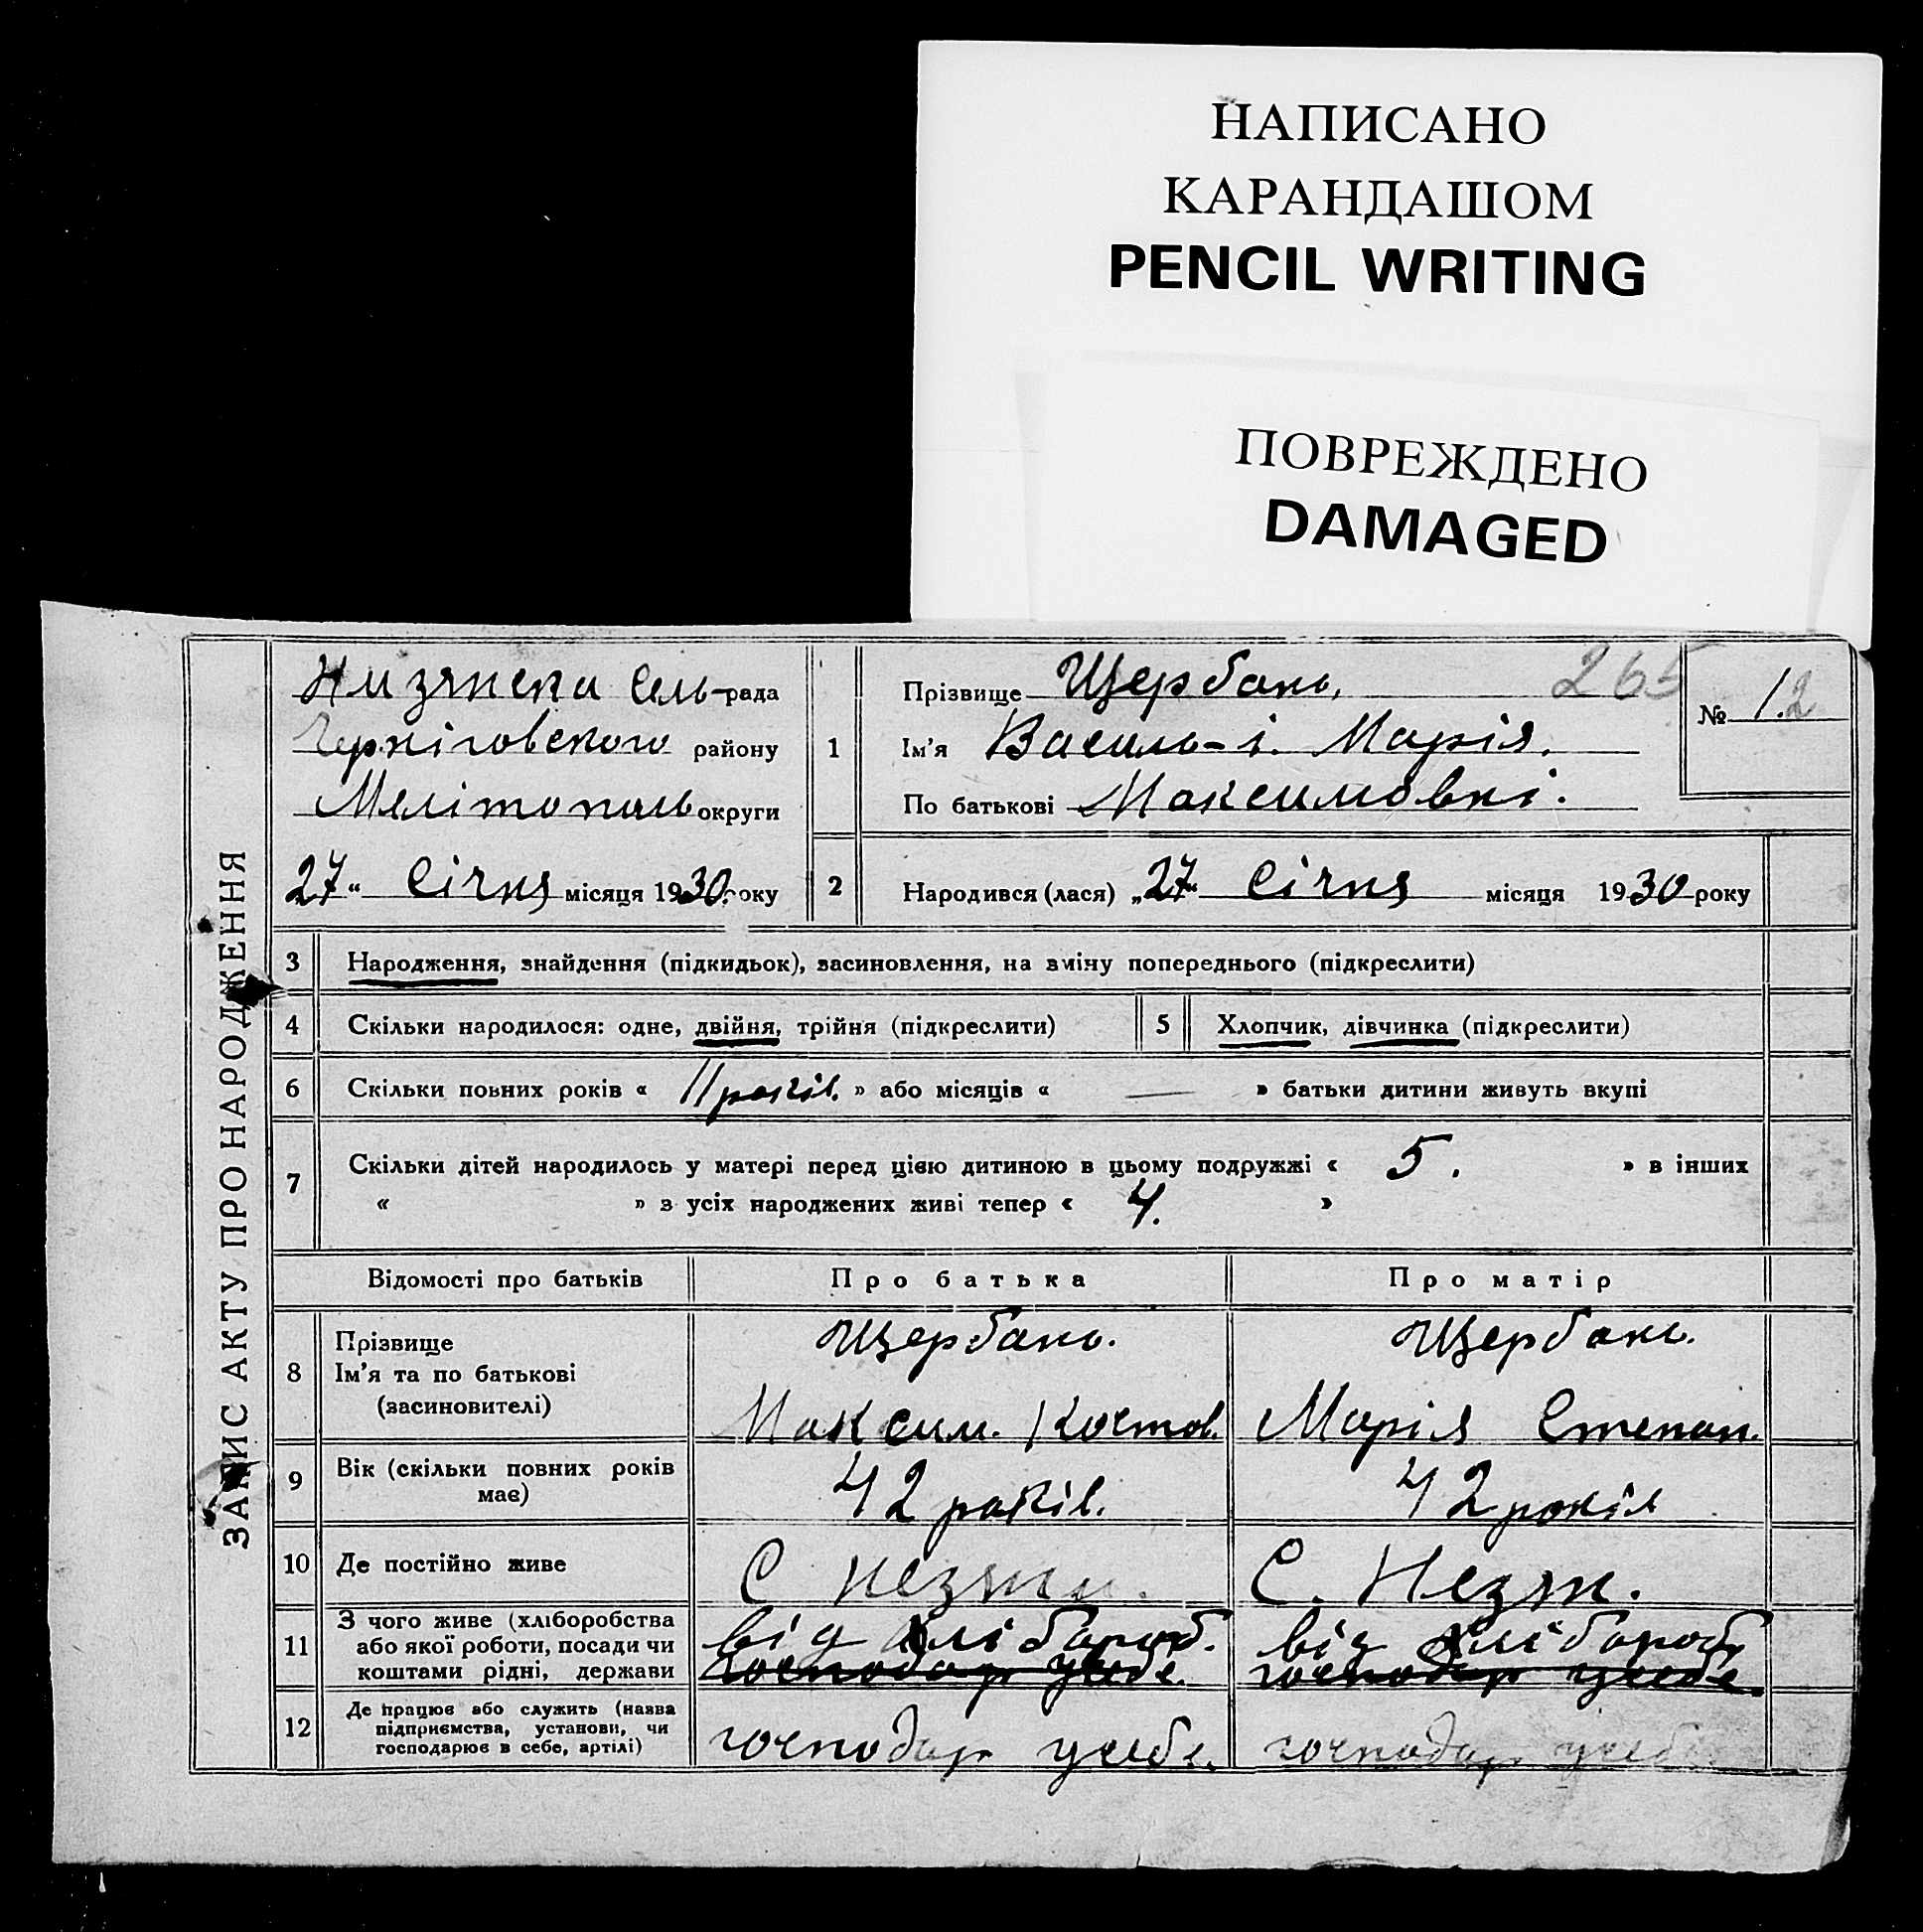 НАПИСАНО
КАРАНДАШОМ
PENCIL WRITING
ПОВРЕЖДЕНО
DAMAGED
ЗАПИС АКТУ ПРО НАРОДЖЕННЯ
Низянська Сель-рада
Черніговського району
Мелітополь округи
27 “ Січня місяця 1930 року
1
Прізвище Щербань.
265
№ 12
Ім'я Василь-і. Марія.
По батькові Максимовні.
2
Народився (лася) „27“ Січня місяця 1930 року
3 Народження, знайдення (підкидьок), засиновлення, на зміну попереднього (підкреслити)
4 Скільки народилося: одне, двійня, трійня (підкреслити)
5 Хлопчик, дівчинка (підкреслити)
6 Скільки повних років « 11 років. » або місяців « — » батьки дитини живуть вкупі
7 Скільки дітей народилось у матері перед цією дитиною в цьому подружжі « 5. » в інших
« » з усіх народжених живі тепер « 4. »
Відомості про батьків Про батька Про матір
8 Прізвище
Ім'я та по батькові
(засиновителі)
Щербань. Щербань.
Максим. Костов. Марія Степан.
9 Вік (скільки повних років
має)
42 років. 42 років
10 Де постійно живе С Незян. С. Незян.
11 З чого живе (хліборобства
або якої роботи, посади чи
коштами рідні, держави
від хлібороб. від хлібороб
господар усебе. господар усебе.
12 Де працює або служить (назва
підприємства, установи, чи
господарює в себе, артілі)
господар усебе. господар усебе.